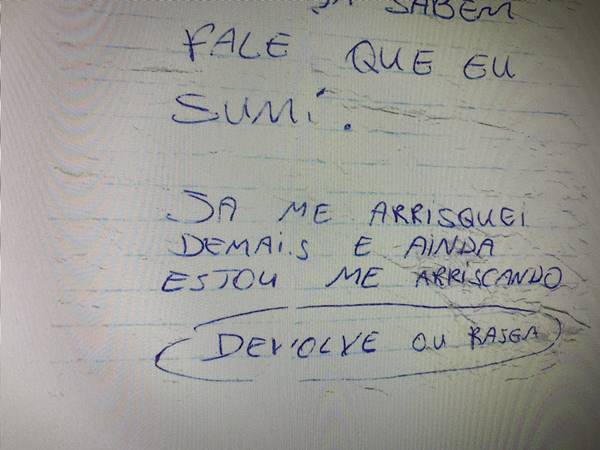 JA SABEM
FALE QUE EU
SUMI.
JA ME ARRISQUEI
DEMAIS E AINDA
ESTOU ME ARRISCANDO
DEVOLVE OU RASGA